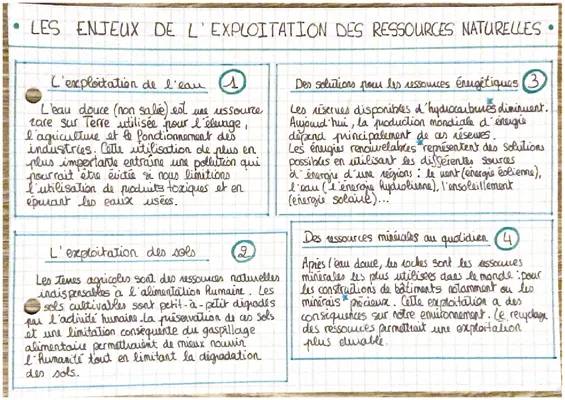 • LES ENJEUX DE L'EXPLOITATION DES RESSOURCES NATURELLES •
L'exploitation de l'eau 1
L'eau douce (non salée) est une ressource
rare sur Terre utilisée pour l'élevage,
l'agriculture et le fonctionnement des
industries. Cette utilisation de plus en
plus importante entraîne une pollution qui
pourrait être évitée si nous limitions
l'utilisation de produits toxiques et en
épurant les eaux usées.
L'exploitation des sols 2
Les terres agricoles sont des ressources naturelles
indispensables à l'alimentation humaine. Les
sols cultivables sont petit-à-petit dégradés
par l'activité humaine. La préservation de ces sols
et une limitation conséquente du gaspillage
alimentaire permettraient de mieux nourrir
l'Humanité tout en limitant la dégradation
des sols.
Des solutions pour les ressources énergétiques 3
Les réserves disponibles d'hydrocarbures* diminuent.
Aujourd'hui, la production mondiale d'énergie
dépend principalement de ces réserves.
Les énergies renouvelables* représentent des solutions
possibles en utilisant les différentes sources
d'énergie d'une régions : le vent (énergie éolienne),
l'eau (l'énergie hydrolienne), l'ensoleillement
(énergie solaire)...
Des ressources minérales au quotidien 4
Après l'eau douce, les roches sont les ressources
minérales les plus utilisées dans le monde : pour
les constructions de bâtiments notamment ou les
minerais* précieux. Cette exploitation a des
conséquences sur notre environnement. Le recyclage
des ressources permettrait une exploitation
plus durable.